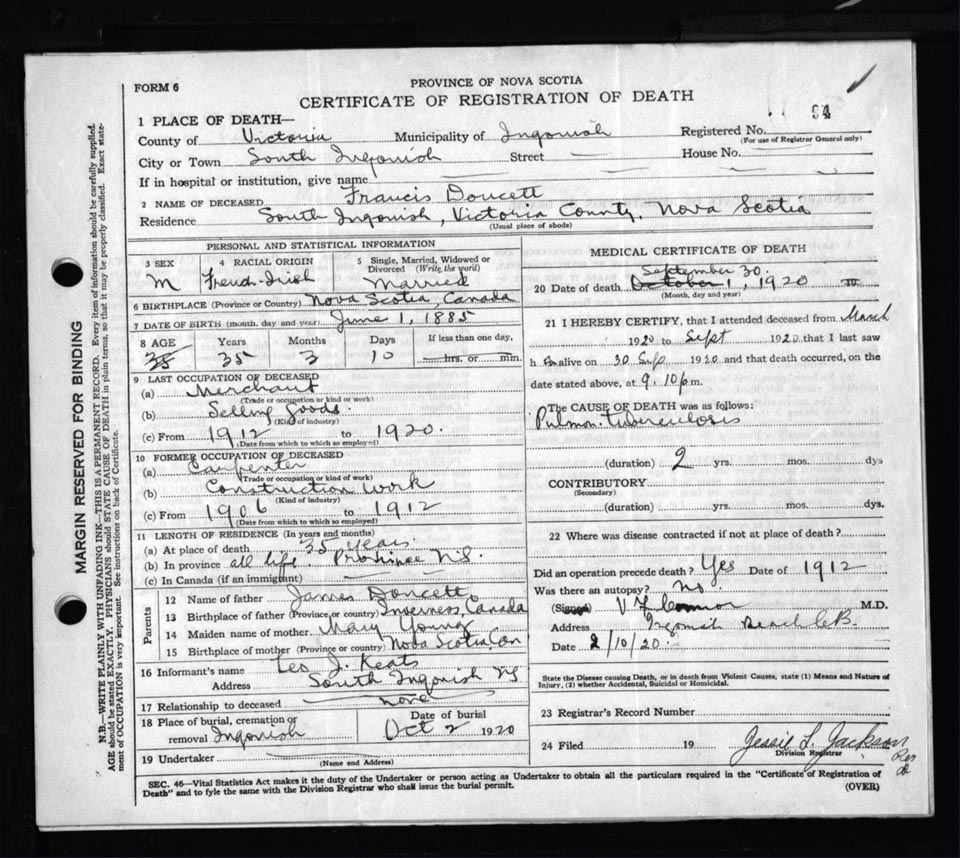 FORM 6
PROVINCE OF NOVA SCOTIA
CERTIFICATE OF REGISTRATION OF DEATH
94
1 PLACE OF DEATH—
County of Victoria Municipality of Ingonish Registered No.
(For use of Registrar General only)
City or Town South Ingonish Street — House No.
If in hospital or institution, give name
2 NAME OF DECEASED Francis Doucett
Residence South Ingonish, Victoria County, Nova Scotia
(Usual place of abode)
PERSONAL AND STATISTICAL INFORMATION
3 SEX 4 RACIAL ORIGIN 5 Single, Married, Widowed or Divorced (Write the word)
M French-Irish Married
6 BIRTHPLACE (Province or Country) Nova Scotia, Canada
7 DATE OF BIRTH (month, day and year) June 1, 1885
8 AGE Years Months Days If less than one day,
35 35 3 10 hrs. or min.
9 LAST OCCUPATION OF DECEASED
(a) Merchant
(Trade or occupation or kind of work)
(b) Selling goods.
(Kind of industry)
(c) From 1912 to 1920.
(Date from which to which so employed)
10 FORMER OCCUPATION OF DECEASED
(a) Carpenter
(Trade or occupation or kind of work)
(b) Construction Work
(Kind of industry)
(c) From 1906 to 1912
(Date from which to which so employed)
11 LENGTH OF RESIDENCE (In years and months)
(a) At place of death 35 years
(b) In province all life. Province N.S.
(c) In Canada (if an immigrant)
Parents
12 Name of father James Doucett
13 Birthplace of father (Province or country) Inverness, Canada
14 Maiden name of mother Mary Young
15 Birthplace of mother (Province or country) Nova Scotia, Can
16 Informant's name Leo J. Keats
Address South Ingonish NS
17 Relationship to deceased none
18 Place of burial, cremation or removal Ingonish
Date of burial Oct 2 1920
19 Undertaker
(Name and Address)
MEDICAL CERTIFICATE OF DEATH
September 30.
20 Date of death October 1, 1920 19
(Month, day and year)
21 I HEREBY CERTIFY, that I attended deceased from March
1920 to Sept 1920 that I last saw
h im alive on 30 Sep 1920 and that death occurred, on the
date stated above, at 9.10 p m.
The CAUSE OF DEATH was as follows:
Pulmon. tuberculosis
(duration) 2 yrs. mos. dys
CONTRIBUTORY
(Secondary)
(duration) yrs. mos. dys.
22 Where was disease contracted if not at place of death?
Did an operation precede death? Yes Date of 1912
Was there an autopsy? No.
(Signed) M.D.
Address Ingonish Beach C.B.
Date 2/10/20.
State the Disease causing Death, or in death from Violent Causes, state (1) Means and Nature of
Injury, (2) whether Accidental, Suicidal or Homicidal.
23 Registrar's Record Number
24 Filed 19 Jessie L. Jackson
Division Registrar
SEC. 46—Vital Statistics Act makes it the duty of the Undertaker or person acting as Undertaker to obtain all the particulars required in the "Certificate of Registration of
Death" and to fyle the same with the Division Registrar who shall issue the burial permit.
(OVER)
MARGIN RESERVED FOR BINDING
N.B.—WRITE PLAINLY WITH UNFADING INK—THIS IS A PERMANENT RECORD. Every item of information should be carefully supplied.
AGE should be stated EXACTLY. PHYSICIANS should STATE CAUSE OF DEATH in plain terms, so that it may be properly classified. Exact state-
ment of OCCUPATION is very important. See instructions on back of Certificate.